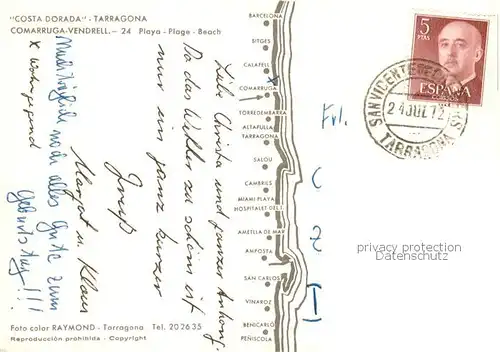 "COSTA DORADA" - TARRAGONA
COMARRUGA-VENDRELL.— 24 Playa - Plage - Beach
Liebe Christa und ganzer Anhang.
Da das Wetter zu schön ist
nur ein ganz kurzer
Gruß
Margot u. Klaus
Nachträglich noch alles Gute zum
Geburtstag!!!
X Wohngegend
Foto color RAYMOND - Tarragona Tel. 20 26 35
Reproducción prohibida - Copyright
BARCELONA
SITGES
CALAFELL
COMARRUGA
X
TORREDEMBARRA
ALTAFULLA
TARRAGONA
SALOU
CAMBRILS
MIAMI PLAYA
HOSPITALET DEL I.
AMETLLA DE MAR
AMPOSTA
SAN CARLOS
VINAROZ
BENICARLÓ
PEÑISCOLA
Frl.
5
PTAS
ESPAÑA
CORREOS
SAN VICENTE DE
24 JUL 72
TARRAGONA
privacy protection
Datenschutz